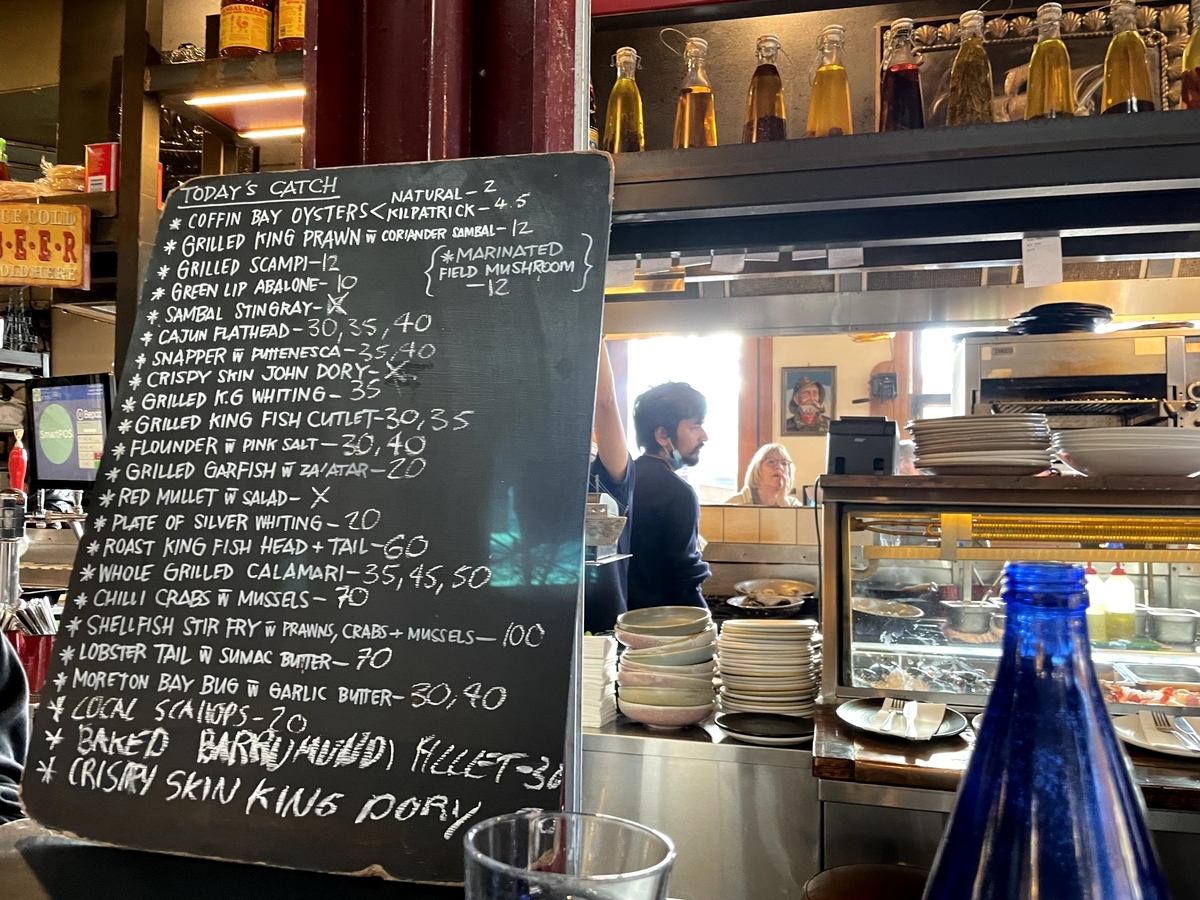 TODAY'S CATCH
* COFFIN BAY OYSTERS < NATURAL - 2
KILPATRICK - 4.5
* GRILLED KING PRAWN w̄ CORIANDER SAMBAL - 12
* GRILLED SCAMPI - 12
{* MARINATED
FIELD MUSHROOM
- 12}
* GREEN LIP ABALONE - 10
* SAMBAL STINGRAY - X
* CAJUN FLATHEAD - 30, 35, 40
* SNAPPER w̄ PUTTENESCA - 35, 40
* CRISPY SKIN JOHN DORY - X
* GRILLED K.G WHITING - 35
* GRILLED KING FISH CUTLET - 30, 35
* FLOUNDER w̄ PINK SALT - 30, 40
* GRILLED GARFISH w̄ ZA'ATAR - 20
* RED MULLET w̄ SALAD - X
* PLATE OF SILVER WHITING - 20
* ROAST KING FISH HEAD + TAIL - 60
* WHOLE GRILLED CALAMARI - 35, 45, 50
* CHILLI CRABS w̄ MUSSELS - 70
* SHELLFISH STIR FRY w̄ PRAWNS, CRABS + MUSSELS - 100
* LOBSTER TAIL w̄ SUMAC BUTTER - 70
* MORETON BAY BUG w̄ GARLIC BUTTER - 30, 40
* LOCAL SCALLOPS - 20
* BAKED BARRUMUNDI FILLET - 36
* CRISPY SKIN KING DORY
ICE COLD
BEER
SOLD HERE
SmartPOS